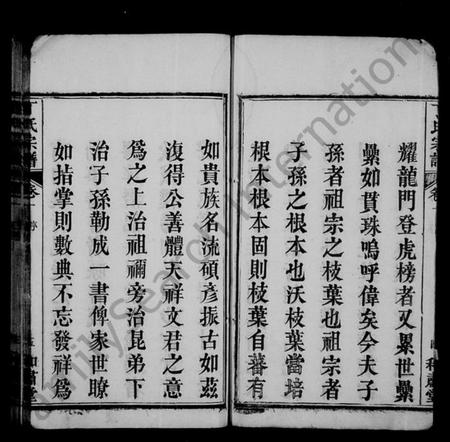 耀龍門登虎榜者又累世纍
纍如貫珠嗚呼偉矣今夫子
孫者祖宗之枝葉也祖宗者
子孫之根本也沃枝葉當培
根本根本固則枝葉自蕃有
如貴族名流碩彥振古如茲
復得公善體天祥文君之意
為之上治祖禰旁治昆弟下
治子孫勒成一書俾家世瞭
如拮掌則數典不忘發祥為
氏宗譜
卷
氏宗譜
卷
FamilySearch International